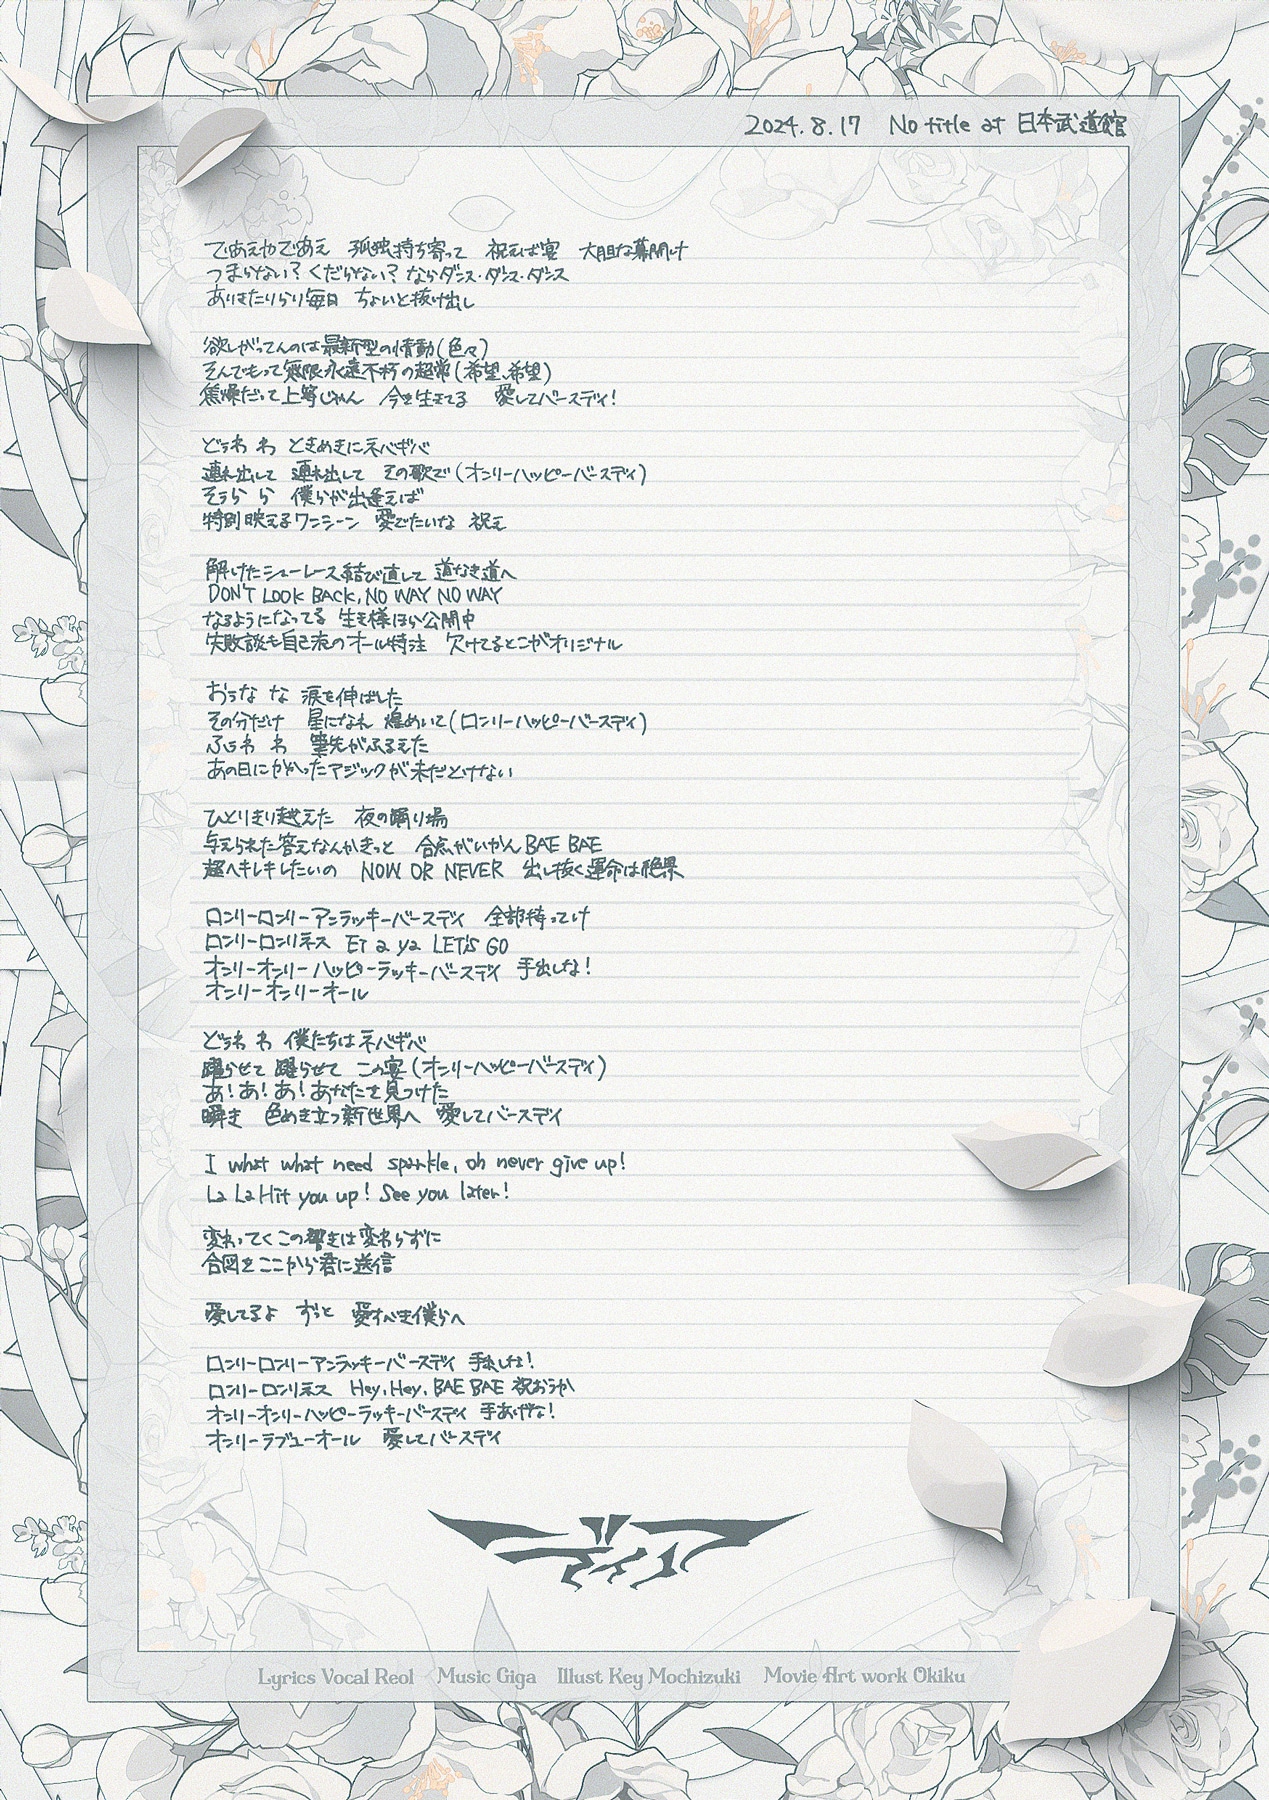 2024.8.17 No title at 日本武道館
であえやであえ 孤独持ち寄って 祝えば宴 大胆な幕開け
つまらない？くだらない？ならダンス・ダンス・ダンス
ありきたりらり毎日 ちょいと抜け出し
欲しがってんのは最新型の情動(色々)
そんでもって無限永遠不朽の超常(希望、希望)
焦燥だって上等じゃん 今を生きてる 愛してバースデイ！
どぅわ わ ときめきにネバギバ
連れ出して 連れ出して その歌で(オンリーハッピーバースデイ)
そぅら ら 僕らが出逢えば
特別映えるワンシーン 愛でたいな 祝え
解けたシューレース結び直して 道なき道へ
DON'T LOOK BACK, NO WAY NO WAY
なるようになってる 生き様ほら公開中
失敗談も自己流のオール特注 欠けてるとこがオリジナル
おぅな な 涙を伸ばした
その分だけ 星になれ 煌めいて(ロンリーハッピーバースデイ)
ふぅわ わ 筆先がふるえた
あの日にかかったマジックが未だとけない
ひとりきり越えた 夜の踊り場
与えられた答えなんかきっと 合点がいかん BAE BAE
超ヘキレキしたいの NOW OR NEVER 出し抜く運命は絶景
ロンリーロンリーアンラッキーバースデイ 全部持ってけ
ロンリーロンリネス Ei a ya LET'S GO
オンリーオンリーハッピーラッキーバースデイ 手出しな！
オンリーオンリーオール
どぅわ わ 僕たちはネバギバ
躍らせて 躍らせて この宴(オンリーハッピーバースデイ)
あ！あ！あ！あなたを見つけた
瞬き 色めき立つ新世界へ 愛してバースデイ
I what what need sparkle, oh never give up!
La La Hit you up! See you later!
変わってくこの響きは変わらずに
合図をここから君に送信
愛してるよ ずっと 愛すべき僕らへ
ロンリーロンリーアンラッキーバースデイ
ロンリーロンリネス Hey, Hey, BAE BAE 祝おうか
オンリーオンリーハッピーラッキーバースデイ 手あげな！
オンリーラブユーオール 愛してバースデイ
Lyrics Vocal Reol Music Giga Illust Key Mochizuki Movie Art work Okiku